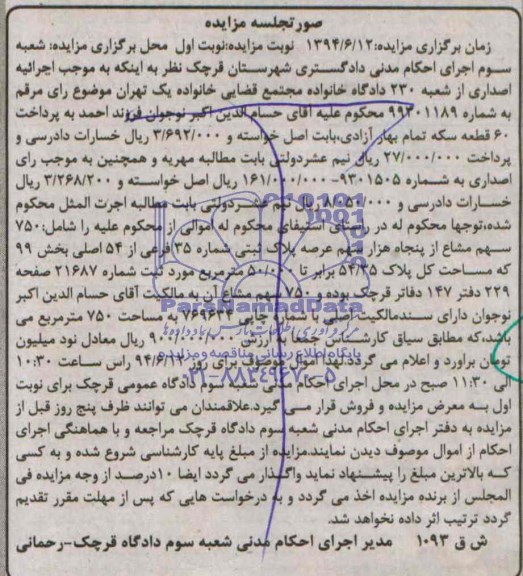 صورتجلسه مزایده
زمان برگزاری مزایده:۱۳۹۴/۶/۱۲ نوبت مزایده:نوبت اول محل برگزاری مزایده: شعبه
سـوم اجرای احکام مدنی دادگستری شهرستان قرچک نظر به اینکه به موجب اجرائیه
اصداری از شعبه ۲۳۰ دادگاه خانواده مجتمع قضایی خانواده یک تهران موضوع رای مرقم
به شماره ۹۹۳۰۱۱۸۹ محکوم علیه آقای حسام الدین اکبر نوجوان فرزند احمد به پرداخت
۶۰ قطعه سکه تمام بهار آزادی،بابت اصل خواسته و ۳/۶۹۲/۰۰۰ ریال خسارات دادرسی و
پرداخت ۲۷/۰۰۰/۰۰۰ ریال نیم عشردولتی بابت مطالبه مهریه و همچنین به موجب رای
اصداری به شـماره ۹۳۰۱۵۰۵- ۱۶۱/۰۰۰/۰۰۰ ریال اصل خواسـته و ۳/۲۶۸/۲۰۰ ریال
خسـارات دادرسی و ۱۸/۰۵۰/۰۰۰ ریال نیم عشـردولتی بابت مطالبه اجرت المثل محکوم
شده،توجها محکوم له در راستای استیفای محکوم له اموالی از محکوم علیه را شامل:۷۵۰
سـهم مشاع از پنجاه هزار سهم عرصه پلاک ثبتی شماره ۳۵ فرعی از ۵۴ اصلی بخش ۹۹
که مسـاحت کل پلاک ۵۴/۳۵ برابر تا ۵۰/۰۰۰ مترمربع مورد ثبت شماره ۲۱۶۸۷ صفحه
۲۲۹ دفتر ۱۴۷ دفاتر قرچک بوده و ۷۵۰ سهم مشاع آن به مالکیت آقای حسام الدین اکبر
نوجوان دارای سـندمالکیت اصلی به شماره چاپی ۷۶۹۶۳۴ به مساحت ۷۵۰ مترمربع می
باشد،که مطابق سیاق کارشناسی جمعا به ارزش ریال معادل نود میلیون
تومان براورد و اعلام می گردد.لهذا اموال موصوف برای روز ۹۴/۶/۱۲ راس سـاعت ۱۰:۳۰
الی ۱۱:۳۰ صبح در محل اجرای احکام مدنی شعبه سـوم دادگاه عمومی قرچک برای نوبت
اول بـه معرض مزایده و فروش قرار مـی گیرد.علاقمندان می توانند ظرف پنج روز قبل از
مزایده به دفتر اجرای احکام مدنی شعبه سوم دادگاه قرچک مراجعه و با هماهنگی اجرای
احکام از اموال موصوف دیدن نمایند.مزایده از مبلغ پایه کارشناسی شروع شده و به کسی
کـه بالاترین مبلغ را پیشـنهاد نماید واگـذار می گردد ایضا ۱۰درصـد از وجه مزایده فی
المجلس از برنده مزایده اخذ می گردد و به درخواست هایی که پس از مهلت مقرر تقدیم
گردد ترتیب اثر داده نخواهد شد.
ش ق ۱۰۹۳ مدیر اجرای احکام مدنی شعبه سوم دادگاه قرچک-رحمانی
ParsNamadData
پایگاه اطلاع رسانی مناقصه و مزایده
۰۲۱-۸۸۳۴۹۶۷۰-۵